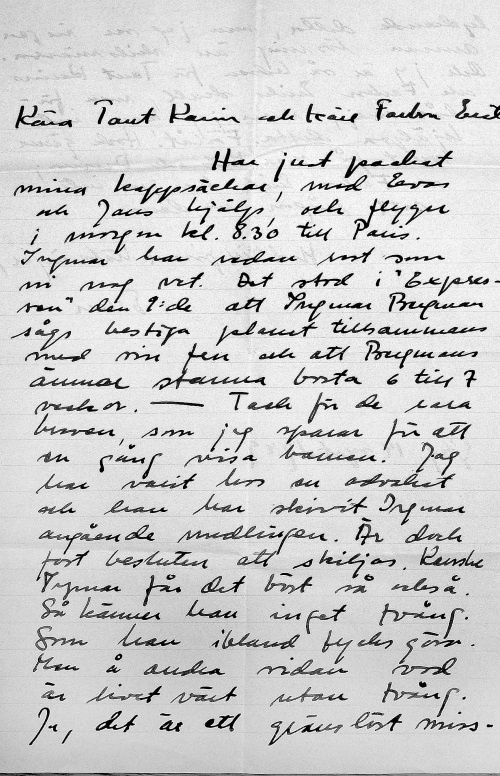 Kära Tant Karin och käre Farbror Erik
Har just packat
mina kappsäckar, med Evas
och Jans hjälp, och flyger
i morgon kl. 8.30 till Paris.
Ingmar har redan rest som
ni nog vet. Det stod i "Expres-
sen" den 9:de att Ingmar Bergman
sågs bestiga planet tillsammans
med sin fru och att Bergmans
ämnar stanna borta 6 till 7
veckor. — Tack för de rara
breven, som jag sparar för att
en gång visa barnen. Jag
har varit hos en advokat
och han har skrivit Ingmar
angående medlingen. Är dock
fast besluten att skiljas. Kanske
Ingmar får det bäst så också.
Så känner han inget tvång.
Som han ibland tycks göra.
Men å andra sidan vad
är livet värt utan tvång.
Ja, det är ett gränslöst miss-